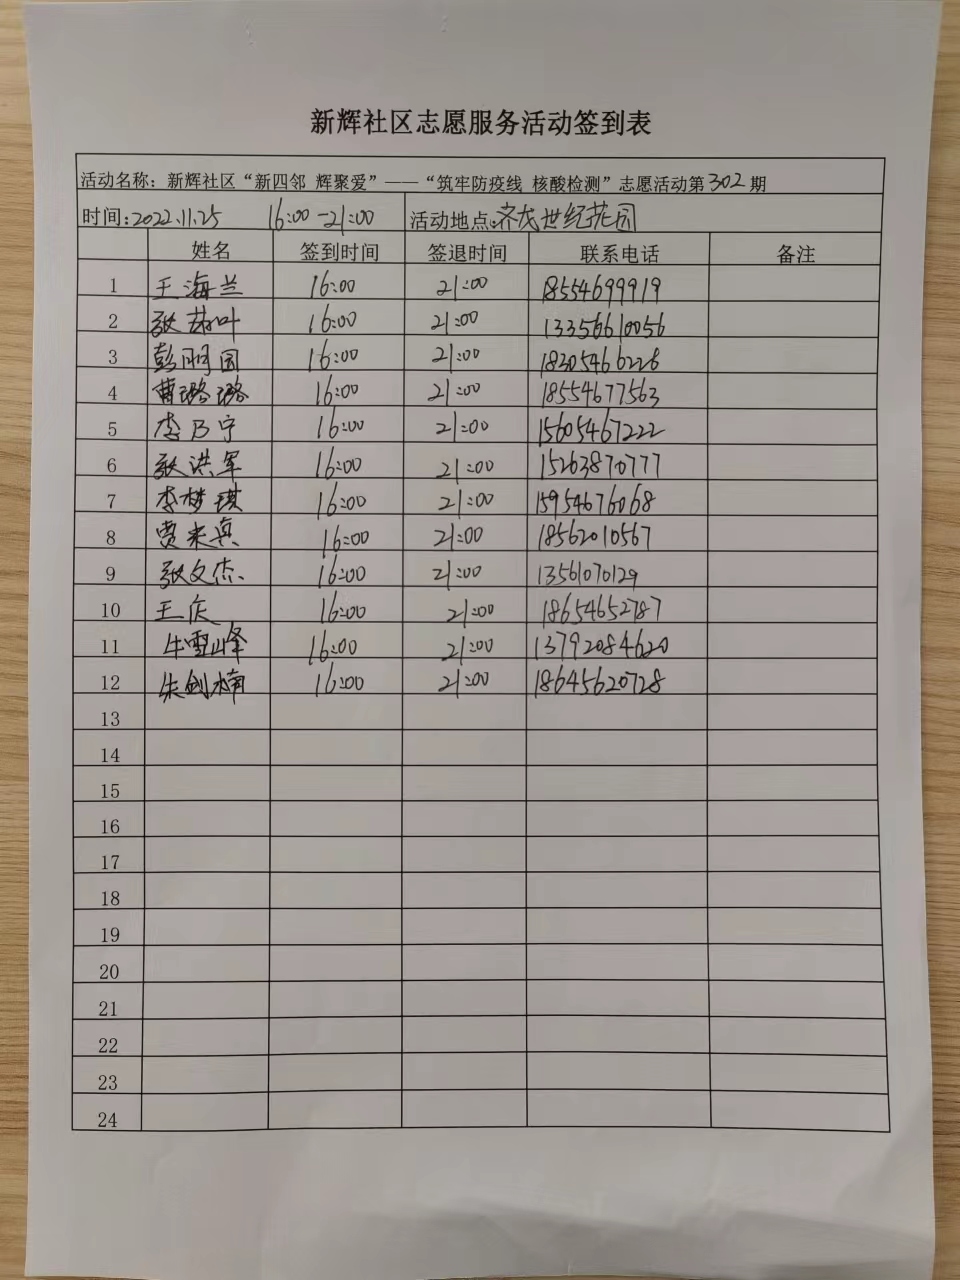 新辉社区志愿服务活动签到表
活动名称：新辉社区“新四邻 辉聚爱”——“筑牢防疫线 核酸检测”志愿活动第302期
时间:2022.11.25 16:00-21:00 活动地点:齐茂世纪花园
姓名 签到时间 签退时间 联系电话 备注
1 王海兰 16:00 21:00 18554699919
2 张荷叶 16:00 21:00 13356610056
3 彭丽园 16:00 21:00 18205466226
4 曹璐璐 16:00 21:00 18554677563
5 李乃宁 16:00 21:00 15605467222
6 张洪军 16:00 21:00 15263870777
7 李梦琪 16:00 21:00 15954676068
8 贾来真 16:00 21:00 18562010567
9 张文杰 16:00 21:00 13561070129
10 王庆 16:00 21:00 18654652787
11 牛雪峰 16:00 21:00 13792084620
12 朱剑楠 16:00 21:00 18645620728
13
14
15
16
17
18
19
20
21
22
23
24